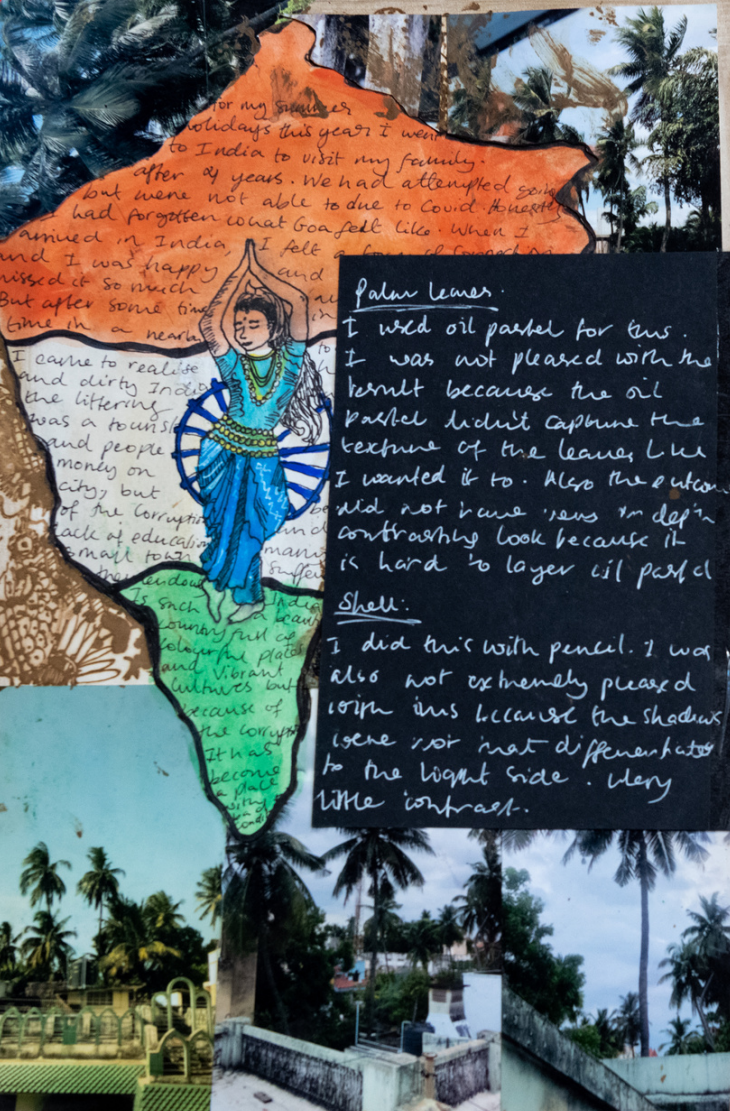 for my summer
holidays this year I went
to India to visit my family.
after 4 years. We had attempted going
but were not able to due to Covid. Honestly
I had forgotten what Goa felt like. When I
arrived in India I felt a
and I was happy and
missed it so much
But after some time in
time in a nearby
I came to realise to
and dirty India
the littering
was a tourist
and people
money on
city, but be
of the corruption and
lack of education many
small town suffer
the India
Is such a beaut
country full of
colourful places
and vibrant
cultures but
because of
the corrupt
It has
become
a place
with
bad
condit
Palm leaves.
I used oil pastel for this.
I was not pleased with the
result because the oil
pastel didn't capture the
texture of the leaves like
I wanted it to. Also the outcom
did not have
contrasting look because it
is hard to layer oil pastel
Shell:
I did this with pencil. I was
also not extremely pleased
with this because the shadows
were not that differentiated
to the light side. Very
little contrast.